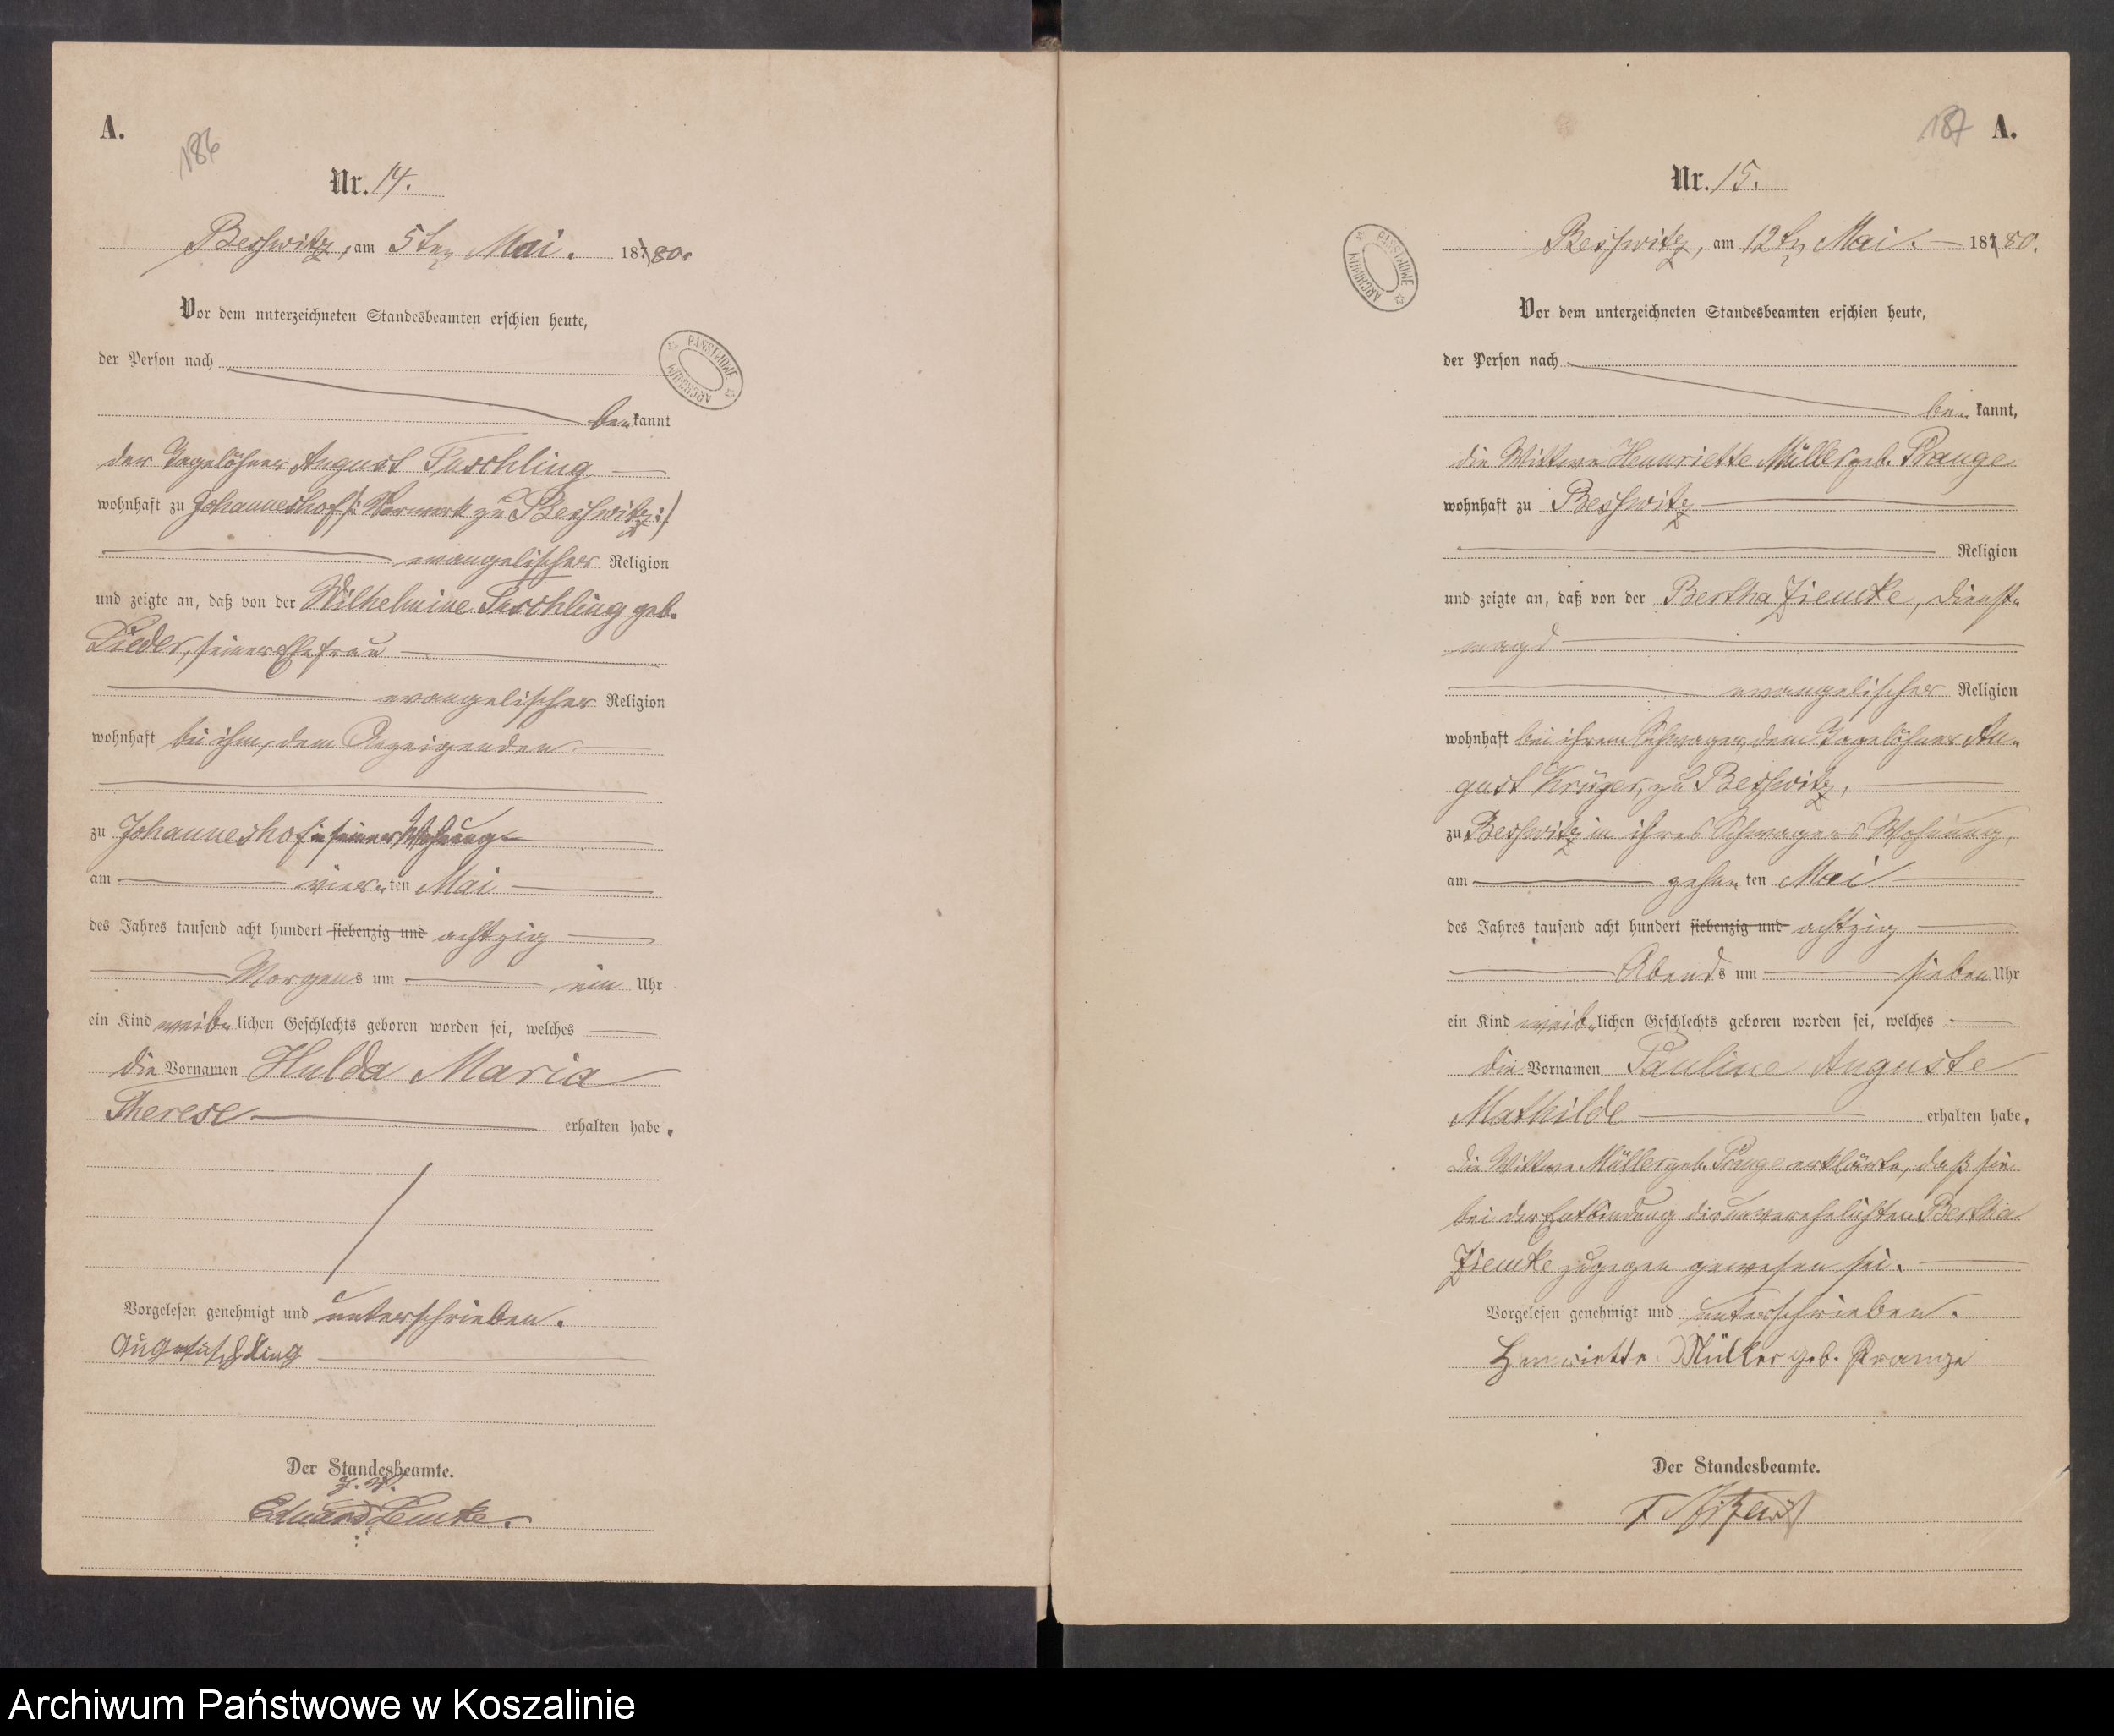 A.
186
Nr. 14.
Beßwitz, am 5ten Mai. 1880.
Vor dem unterzeichneten Standesbeamten erschien heute,
der Person nach
bekannt
der Tagelöhner August Fuschling
wohnhaft zu Johanneshof /: Vorwerk zu Beßwitz :/
evangelischer Religion
und zeigte an, daß von der Wilhelmine Fuschling geb.
seiner Ehefrau
evangelischer Religion
wohnhaft bei ihm, dem Anzeigenden
zu Johanneshof in seiner Wohnung
am vierten Mai
des Jahres tausend acht hundert siebenzig und achtzig
Morgens um ein Uhr
ein Kind weiblichen Geschlechts geboren worden sei, welches
die Vornamen Hulda Maria
Therese erhalten habe.
Vorgelesen genehmigt und unterschrieben.
Der Standesbeamte.
Eduard Lemke.
PAŃSTWOWE ARCHIWUM
187 A.
Nr. 15.
Beßwitz, am 12ten Mai. 1880.
Vor dem unterzeichneten Standesbeamten erschien heute,
der Person nach
bekannt,
die Wittwe Hennriette Müller geb. Prange
wohnhaft zu Beßwitz
Religion
und zeigte an, daß von der Bertha Ziemke, Dienst-
magd
evangelischer Religion
wohnhaft bei ihrem Schwager, dem Tagelöhner Au-
gust Krüger, zu Beßwitz,
zu Beßwitz in ihres Schwagers Wohnung,
am zehnten Mai
des Jahres tausend acht hundert siebenzig und achtzig
Abends um sieben Uhr
ein Kind weiblichen Geschlechts geboren worden sei, welches
die Vornamen Pauline Auguste
Mathilde erhalten habe.
Die Wittwe Müller geb. Prange erklärte, daß sie
bei der Entbindung der unverehelichten Bertha
Ziemke zugegen gewesen sei.
Vorgelesen genehmigt und unterschrieben.
Henriette Müller geb. Prange
Der Standesbeamte.
PAŃSTWOWE ARCHIWUM
Archiwum Państwowe w Koszalinie